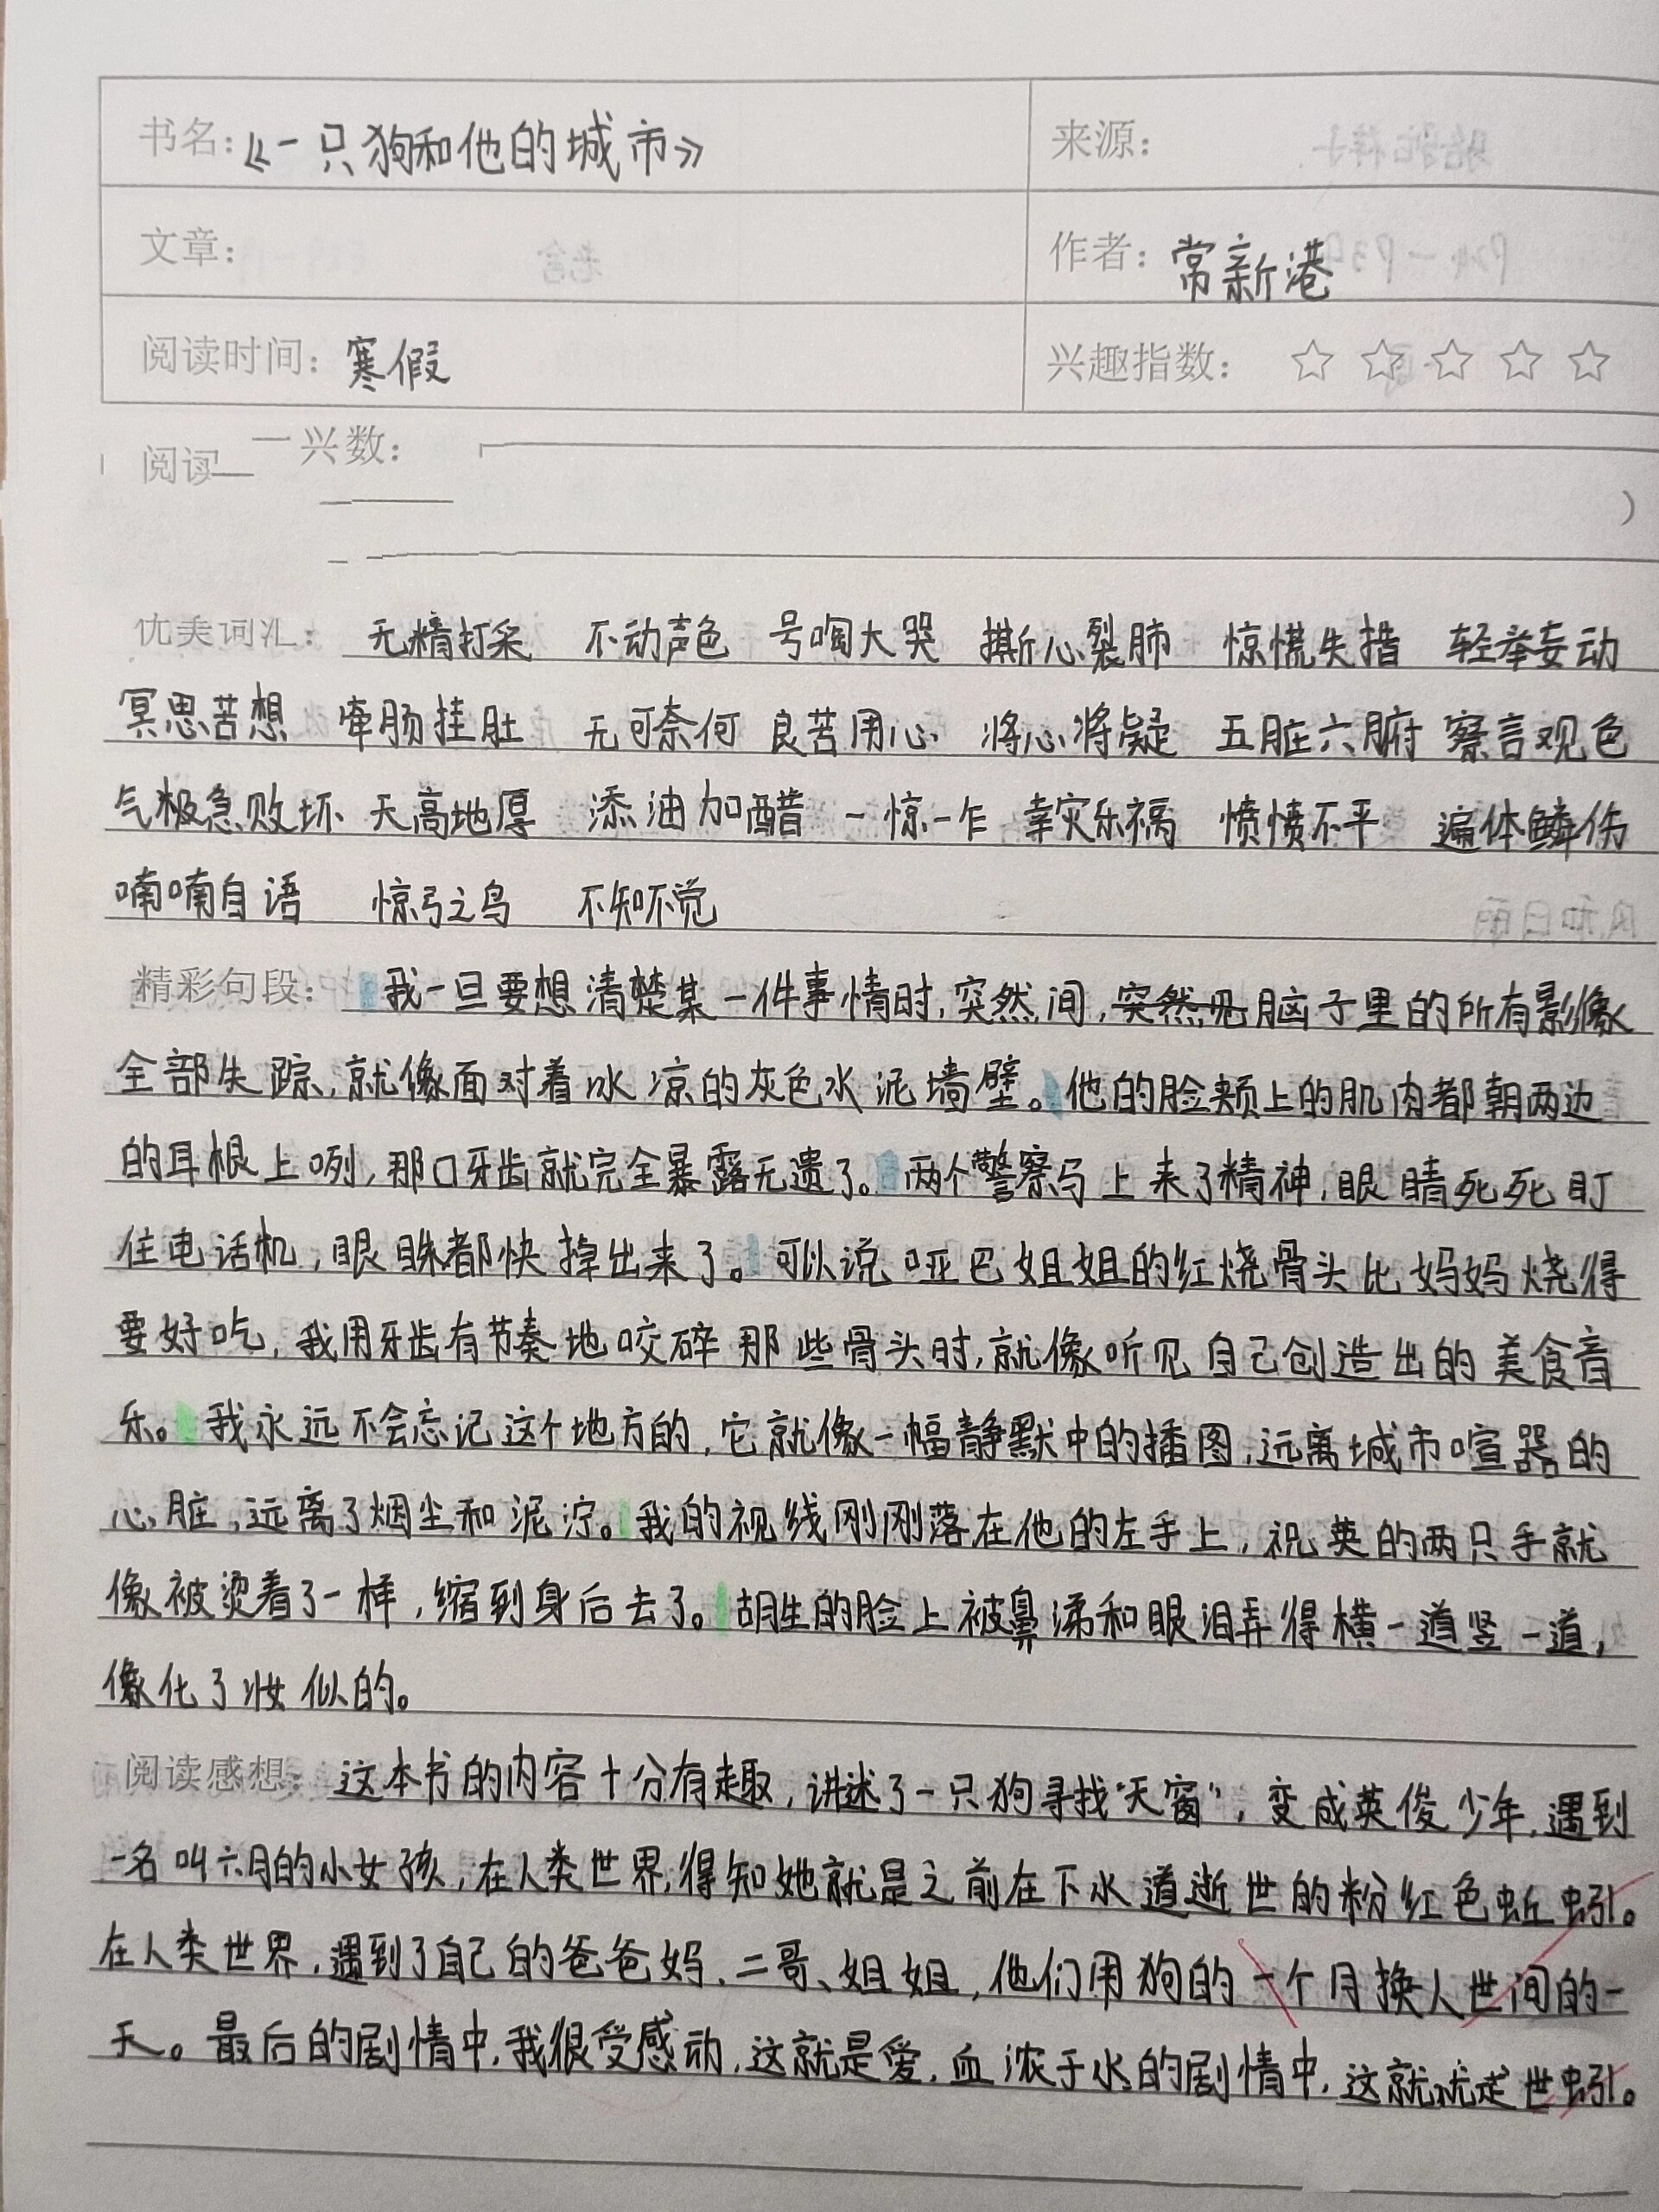 书名：《一只狗和他的城市》 来源：
文章： 作者：常新港
阅读时间：寒假 兴趣指数：☆☆☆☆☆
阅读 兴数：
优美词汇： 无精打采 不动声色 号啕大哭 撕心裂肺 惊慌失措 轻举妄动
冥思苦想 牵肠挂肚 无可奈何 良苦用心 将心将凝 五脏六腑 察言观色
气极急败坏 天高地厚 添油加醋 一惊一乍 幸灾乐祸 愤愤不平 遍体鳞伤
喃喃自语 惊弓之鸟 不知不觉
精彩句段： 我一旦要想清楚某一件事情时，突然间，突然见脑子里的所有影像
全部失踪，就像面对着冰凉的灰色水泥墙壁。他的脸颊上的肌肉都朝两边
的耳根上咧，那口牙齿就完全暴露无遗了。两个警察马上来了精神，眼睛死死盯
住电话机，眼珠都快掉出来了。可以说哑巴姐姐的红烧骨头比妈妈烧得
要好吃，我用牙齿有节奏地咬碎那些骨头时，就像听见自己创造出的美食音
乐。我永远不会忘记这个地方的，它就像一幅静默中的插图，远离城市喧嚣的
心脏，远离了烟尘和泥泞。我的视线刚刚落在他的左手上，祝英的两只手就
像被烫着了一样，缩到身后去了。胡生的脸上被鼻涕和眼泪弄得横一道竖一道，
像化了妆似的。
阅读感想： 这本书的内容十分有趣，讲述了一只狗寻找“天窗”，变成英俊少年，遇到
一名叫六月的小女孩，在人类世界，得知她就是之前在下水道逝世的粉红色蚯蚓。
在人类世界，遇到了自己的爸爸妈、二哥、姐姐，他们用狗的一个月换人世间的一
天。最后的剧情中，我很受感动，这就是爱，血浓于水的剧情中，这就就是世蚓。